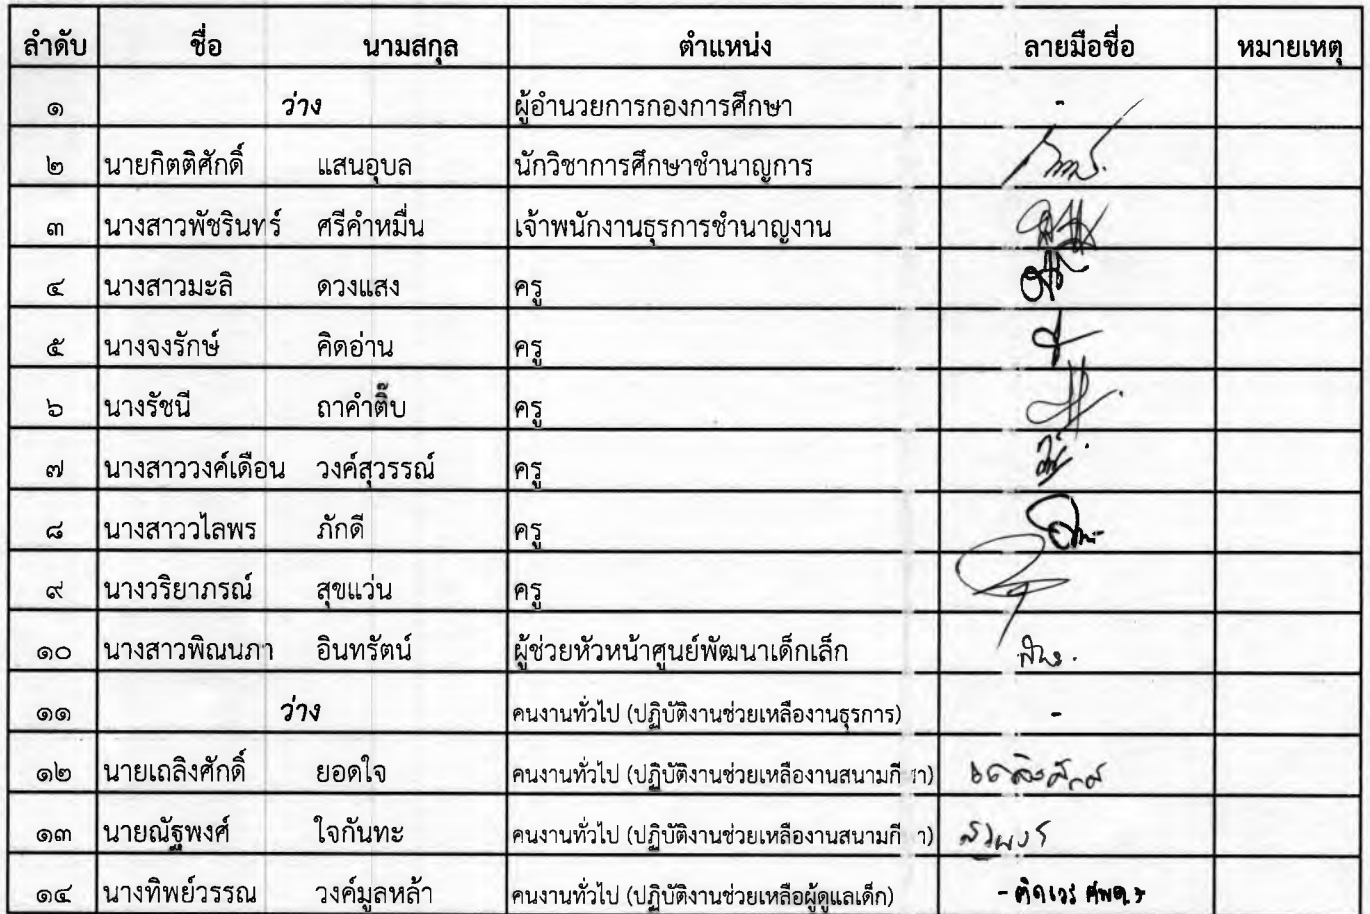 ลำดับ ชื่อ นามสกุล ตำแหน่ง ลายมือชื่อ หมายเหตุ
๑ ว่าง ผู้อำนวยการกองการศึกษา -
๒ นายกิตติศักดิ์ แสนอุบล นักวิชาการศึกษาชำนาญการ
๓ นางสาวพัชรินทร์ ศรีคำหมื่น เจ้าพนักงานธุรการชำนาญงาน
๔ นางสาวมะลิ ดวงแสง ครู
๕ นางจงรักษ์ คิดอ่าน ครู
๖ นางรัชนี ถาคำติ๊บ ครู
๗ นางสาววงค์เดือน วงค์สุวรรณ์ ครู
๘ นางสาววไลพร ภักดี ครู
๙ นางวริยาภรณ์ สุขแว่น ครู
๑๐ นางสาวพิณนภา อินทรัตน์ ผู้ช่วยหัวหน้าศูนย์พัฒนาเด็กเล็ก
๑๑ ว่าง คนงานทั่วไป (ปฏิบัติงานช่วยเหลืองานธุรการ) -
๑๒ นายเถลิงศักดิ์ ยอดใจ คนงานทั่วไป (ปฏิบัติงานช่วยเหลืองานสนามกีฬา) เถลิงศักดิ์
๑๓ นายณัฐพงศ์ ใจกันทะ คนงานทั่วไป (ปฏิบัติงานช่วยเหลืองานสนามกีฬา)
๑๔ นางทิพย์วรรณ วงค์มูลหล้า คนงานทั่วไป (ปฏิบัติงานช่วยเหลือผู้ดูแลเด็ก) - ติดเวร